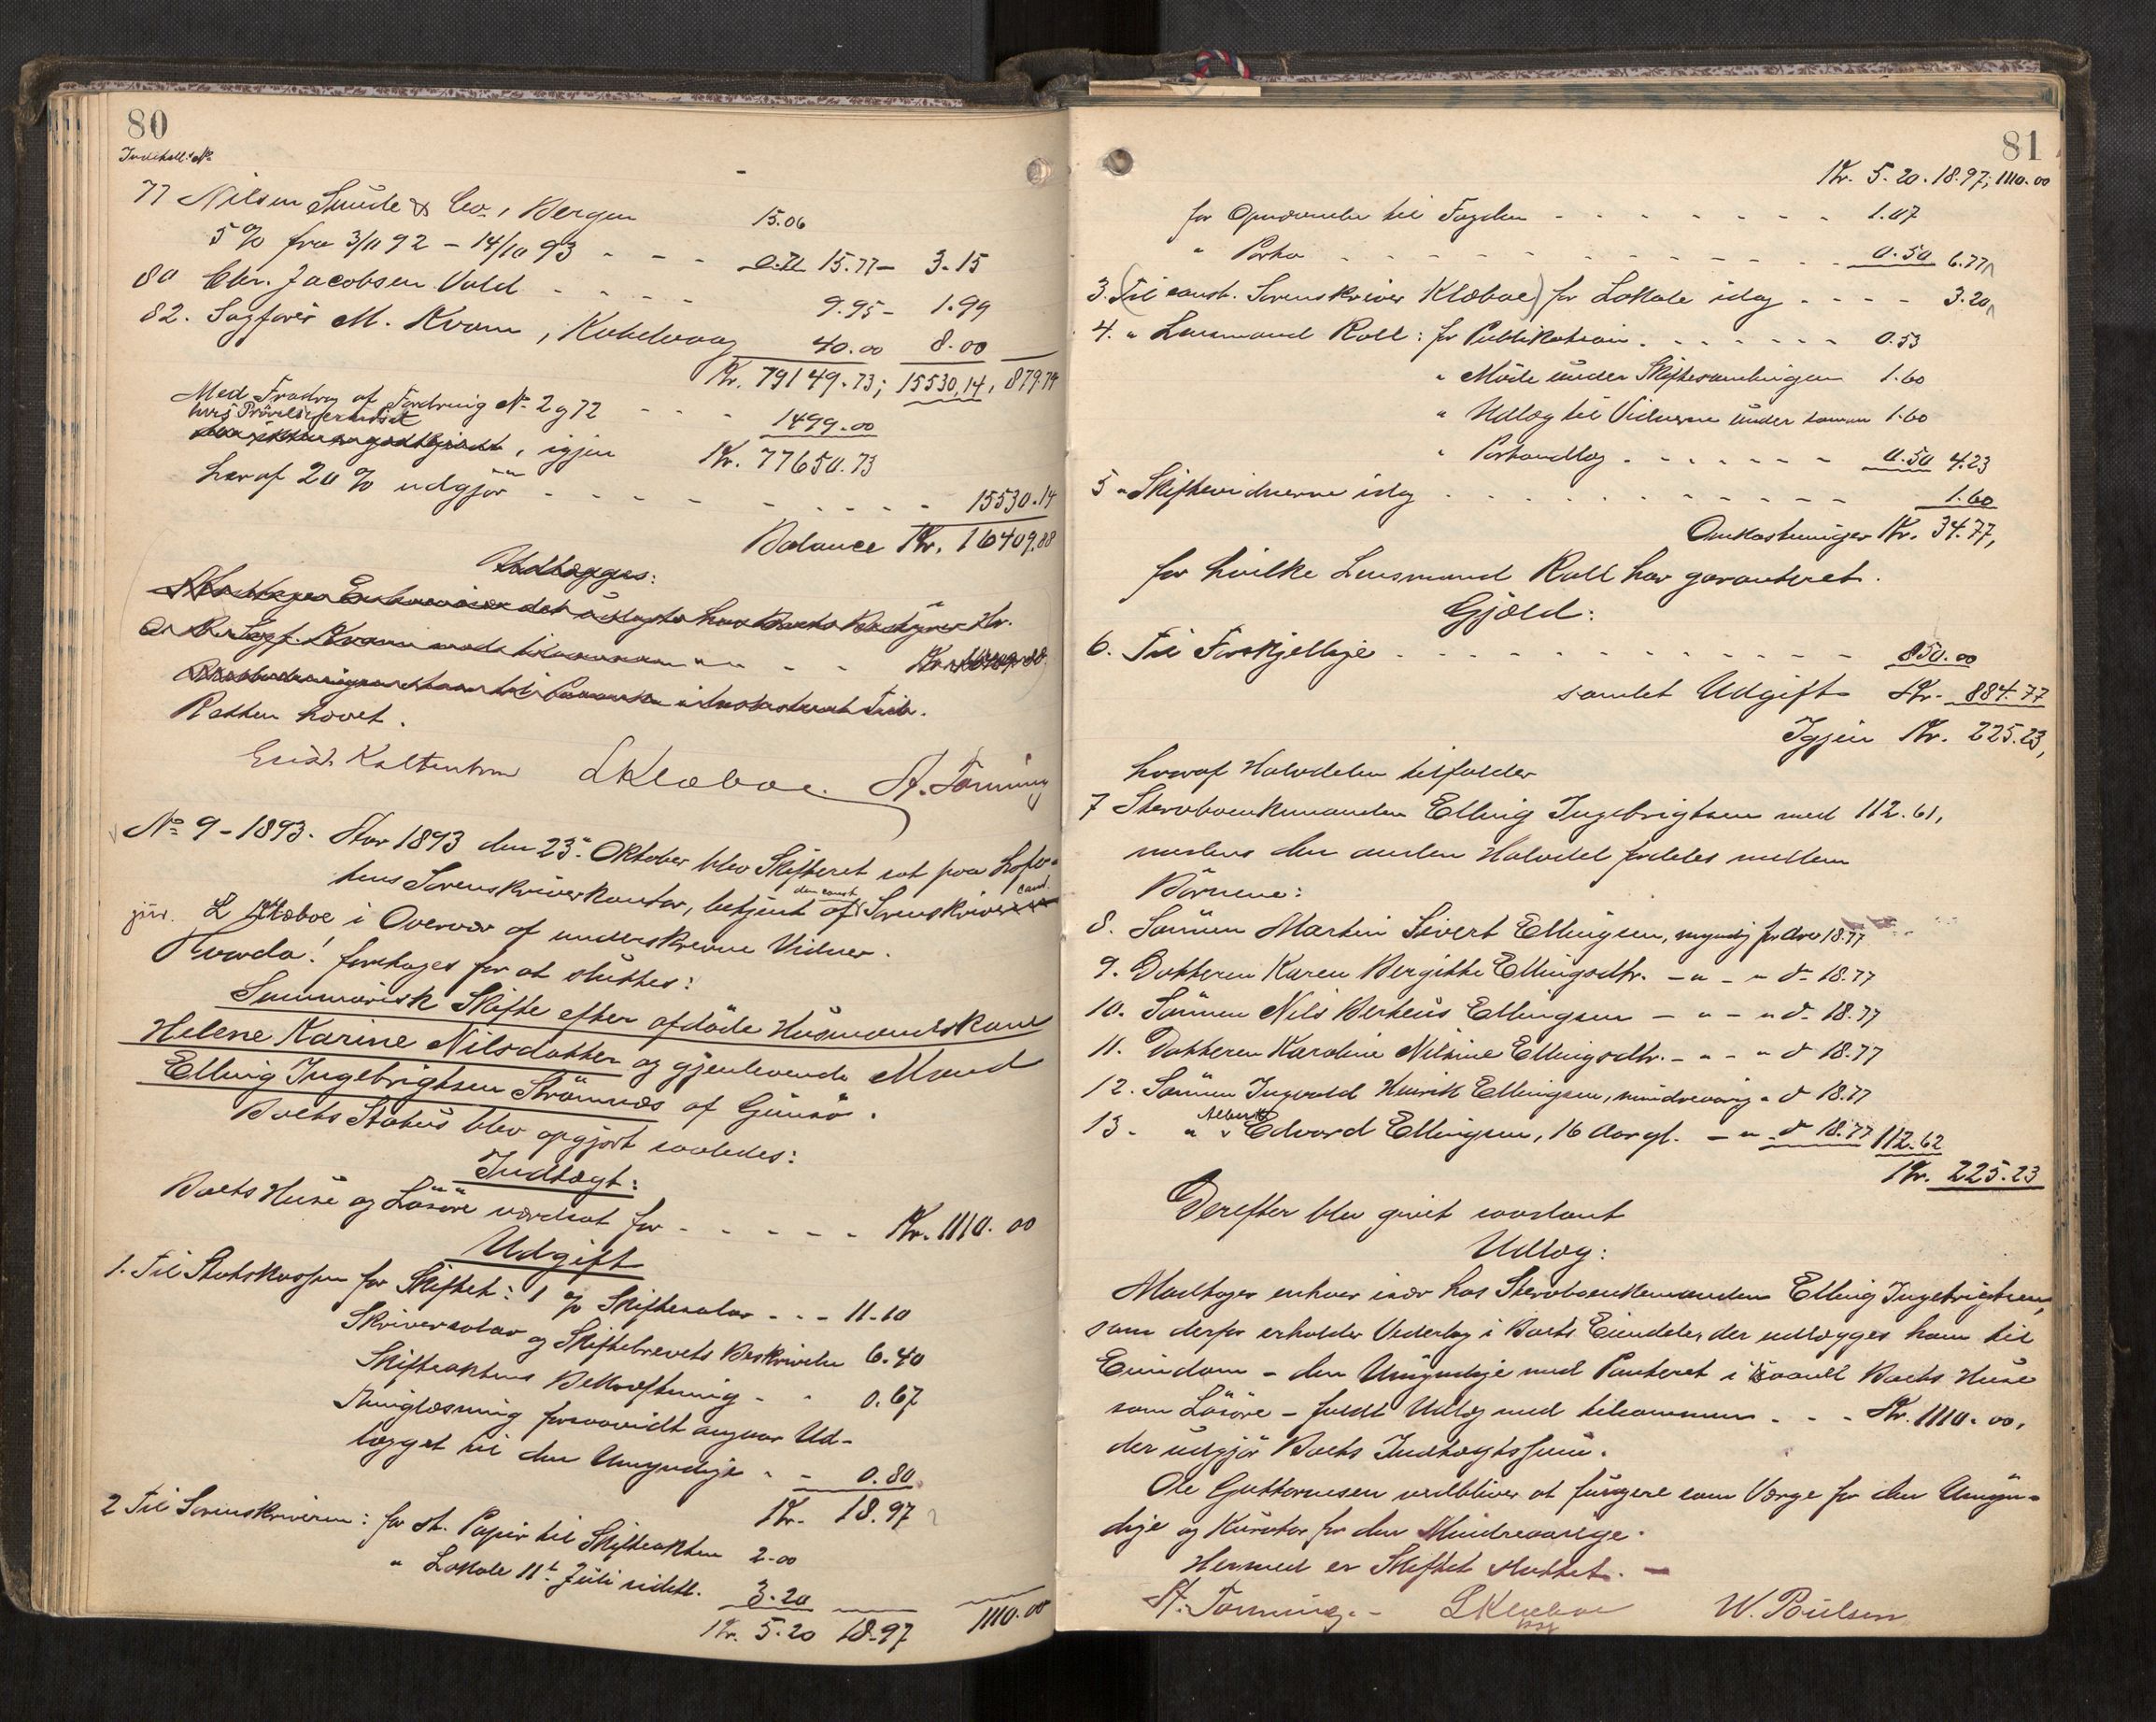 80
Indkall. No
77 Nilsen Sunde & Co, Bergen 15.06
5% fra 3/11 92 - 14/10 93 - - - 0.71 15.77- 3.15
80 Chr. Jacobsen Vold - - - - 9.95- 1.99
82. Sagfører M. Kvam, Kabelvaag 40.00 8.00
Kr. 79149.73; 15530.14, 879.74
Med Fradrag af Fordring No 2 og 72 - - - 1499.00
hvis Prøvelse
, igjen Kr. 77650.73
heraf 20% udgjør - - - - - - - 15530.14
Balance Kr. 16409.88
Udlægges:
Retten hævet.
LKlæboe. St. Tønning
No 9 - 1893. Aar 1893 den 25. Oktober blev Skifteret sat paa Lofo-
tens Sorenskriverkontor, betjent af den const. Sorenskriver cand.
jur. L Klæboe i Overvær af underskrevne Vidner.
Hvorda! foretoges for at sluttes:
Summarisk Skifte efter afdøde Husmandskone
Helene Karine Nilsdatter og gjenlevende Mand
Elling Ingebrigtsen Strømnæs af Gimsø.
Boets Status blev opgjort saaledes:
Indtægt:
Boets Huse og Løsøre værdsat for - - - - - Kr. 1110.00
Udgift
1. Til Statskassen for Skiftet: 1 % Skiftesalar - - - 11.10
Skriversalar og Skiftebrevets Beskrivelse 6.40
Skifteaktens Bekræftning - - 0.67
Thinglæsning forsaavidt angaar Ud-
lægget til den Umyndige - - 0.80
Kr. 18.97
2 Til Sorenskriveren: for st. Papir til Skifteakten 2.00
" Lokale 11te Juli sidstl. 3.20
Kr. 5.20 18.97 1110.00
81
Kr. 5.20. 18.97; 1110.00
for Opnævnelse til Fogden - - - - - - - - 1.07
" Porto - - - - - - - - - - - 0.50 6.77
3. (Til const. Sorenskriver Klæboe) for Lokale idag - - - - 3.20
4. " Lensmand Roll: for Publikation - - - - - - - 0.53
" Møde under Skiftesamlingen 1.60
" Udlæg til Vidnerne under samme 1.60
" Portoudlæg - - - - - - 0.50 4.23
5 " Skiftevidnerne idag - - - - - - - - - - - 1.60
Omkostninger Kr. 34.77,
for hvilke Lensmand Roll har garanteret.
Gjæld:
6. Til Forskjellige - - - - - - - - - - - - - 850.00
samlet Udgift Kr. 884.77
Igjen Kr. 225.23,
hvoraf Halvdelen tilfalder
7 Stervboenkemanden Elling Ingebrigtsen med 112.61,
medens den anden Halvdel fordeles mellem
Børnene:
8. Sønnen Martin Sivert Ellingsen, myndig for Arv 18.77
9. Datteren Karen Bergitte Ellingsdtr. - " - " do 18.77
10. Sønnen Nils Berteus Ellingsen - " - " do 18.77
11. Datteren Karoline Nilsine Ellingsdtr. - " - " do 18.77
12. Sønnen Ingvald Henrik Ellingsen, mindreaarig " do 18.77
13. " Albert Edvard Ellingsen, 16 Aar gl. - " - do 18.77 112.62
Kr. 225.23
Derefter blev givet saadant
Udlæg:
Modtager enhver især hos Stervboenkemanden Elling Ingebrigtsen,
som derfor erholder Vederlag i Boets Eiendele, der udlægges ham til
Eiendom - den Umyndige med Panteret i saavel Boets Huse
som Løsøre - fuldt Udlæg med tilsammen - - - Kr. 1110.00,
der udgjør Boets Indtægtssum.
Ole Guttormsen vedbliver at fungere som Værge for den Umyn-
dige og Kurator for den Mindreaarige.
Hermed er Skiftet sluttet. -
St. Tønning. - LKlæboe W. Poulsen